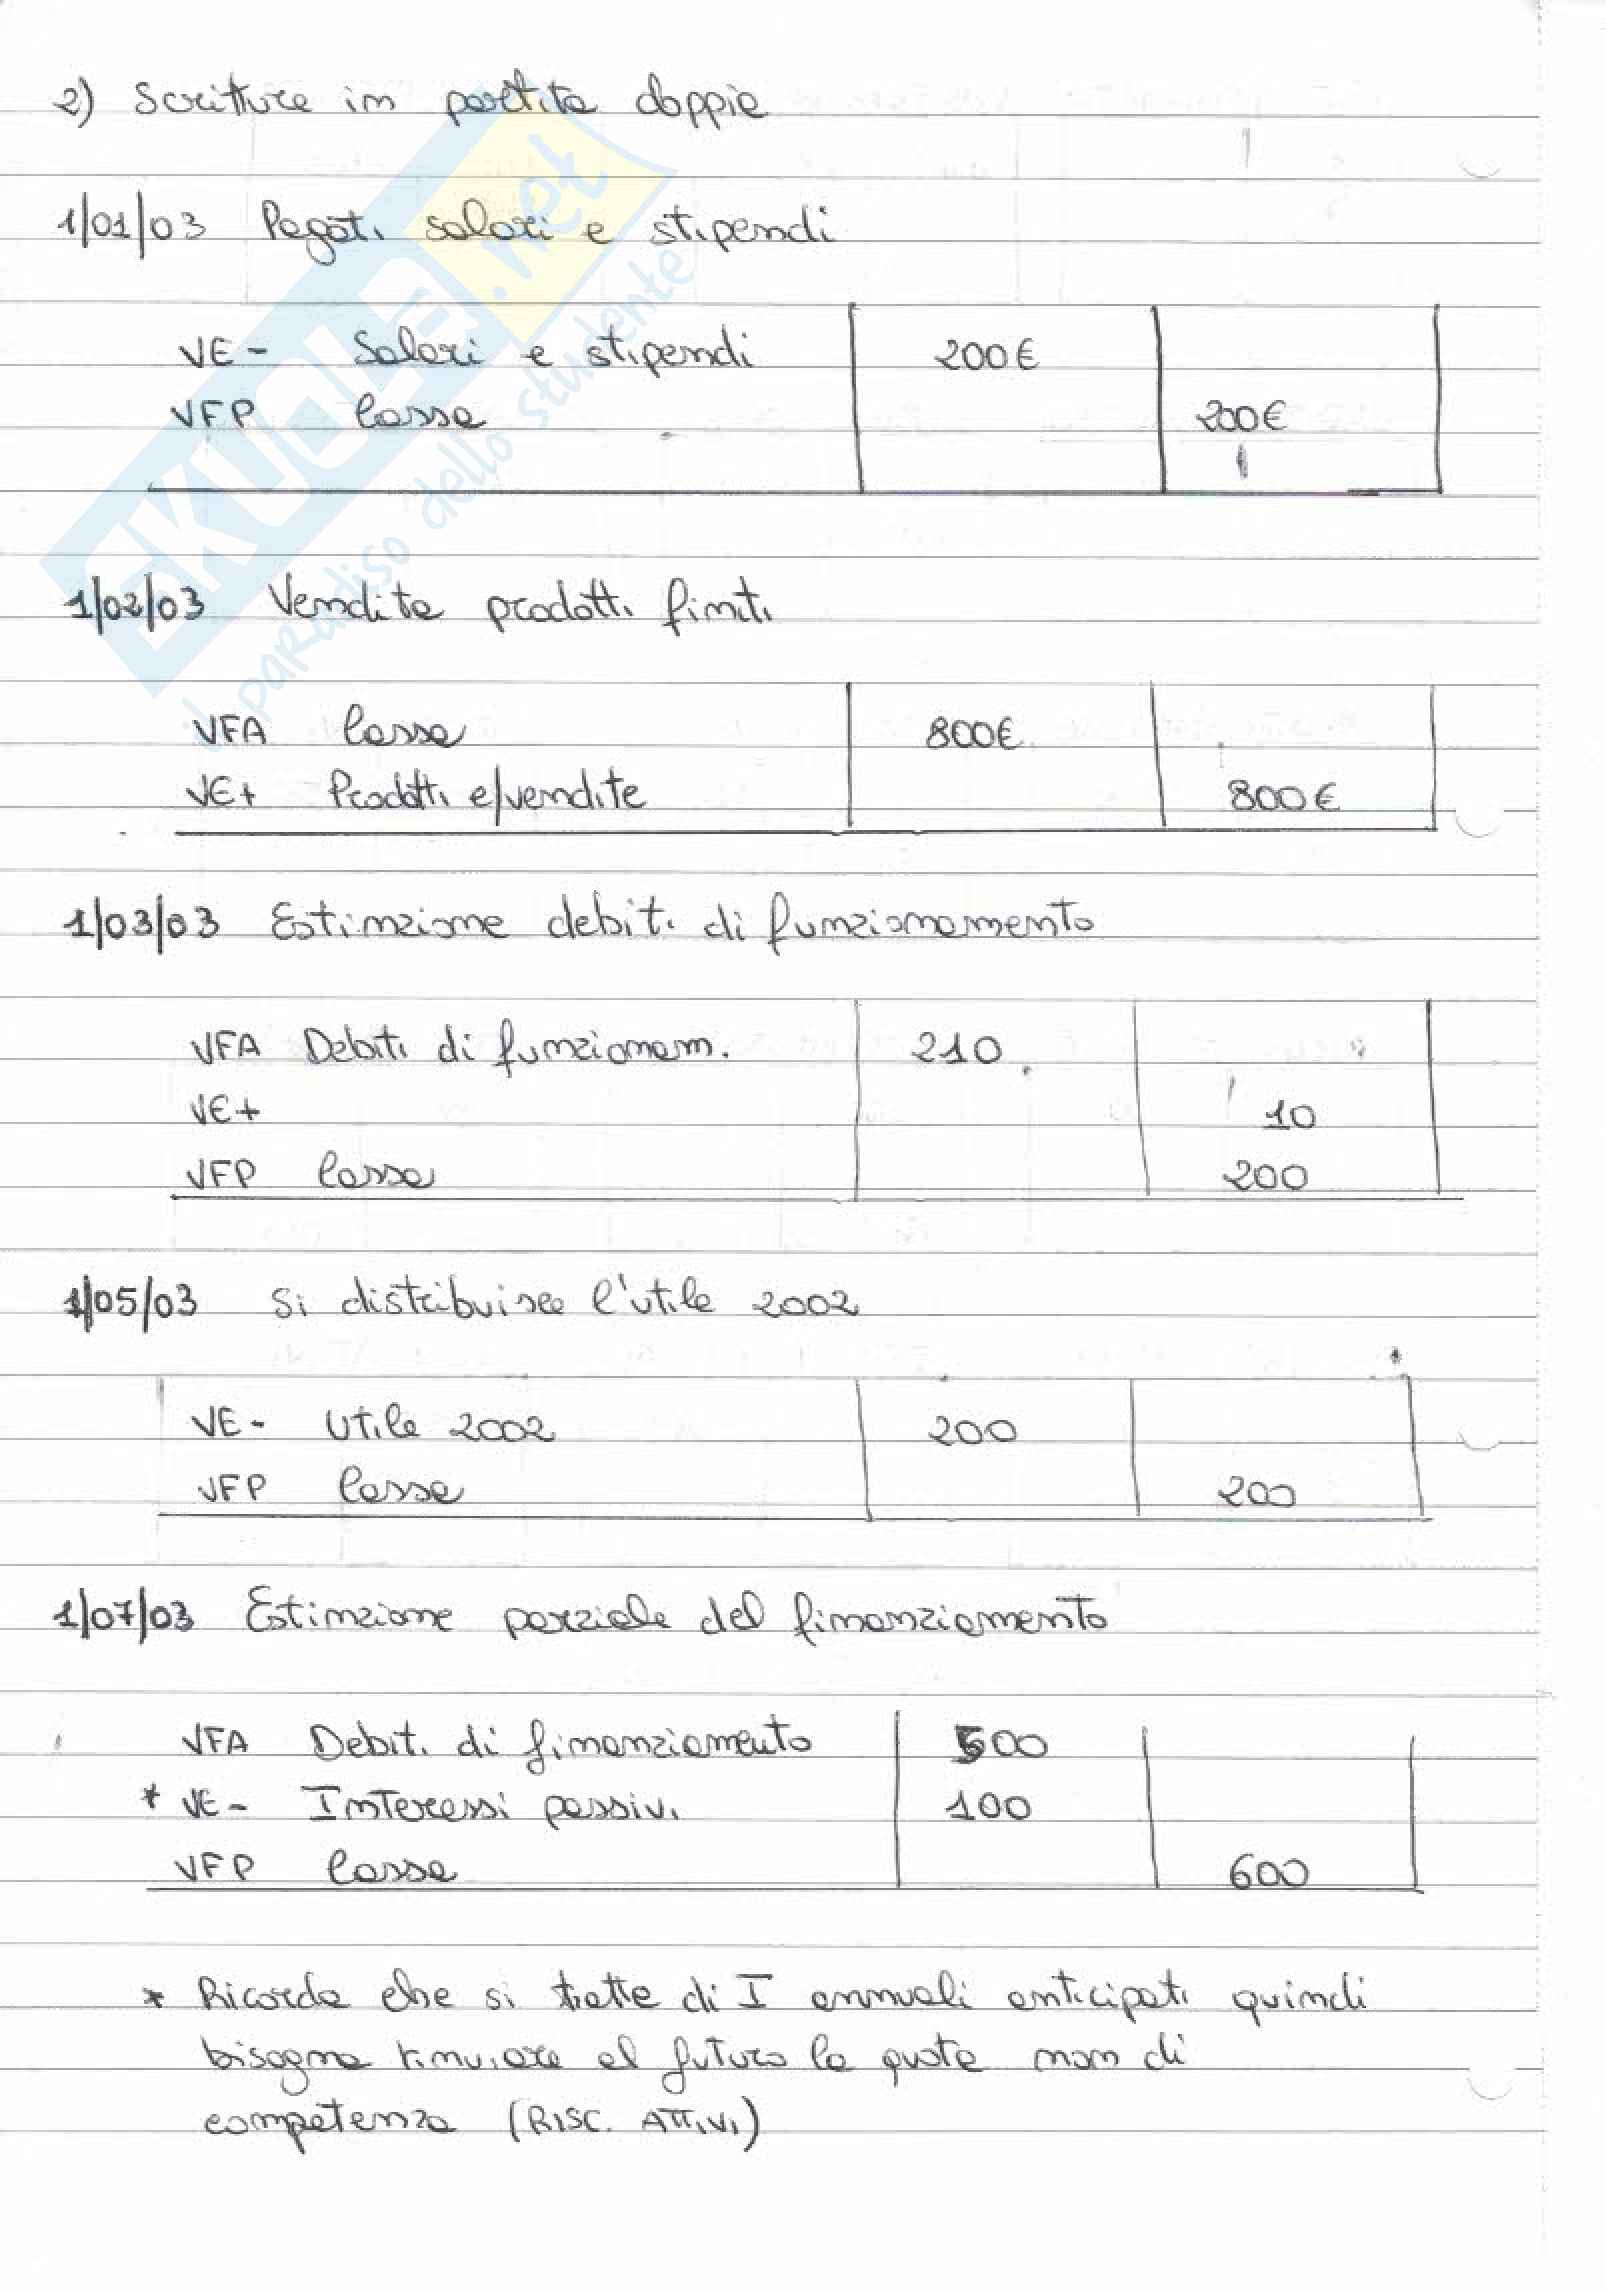 2) Scritture in partita doppia
1/01/03 Pagati salari e stipendi
VE- Salari e stipendi 200€
VFP Cassa 200€
1/02/03 Vendita prodotti finiti
VFA Cassa 800€
VE+ Prodotti c/vendite 800€
1/03/03 Estinzione debiti di funzionamento
VFA Debiti di funzionam. 210
VE+ 10
VFP Cassa 200
1/05/03 Si distribuisce l'utile 2002
VE- Utile 2002 200
VFP Cassa 200
1/07/03 Estinzione parziale del finanziamento
VFA Debiti di finanziamento 500
* VE- Interessi passivi 100
VFP Cassa 600
* Ricorda che si tratta di I annuali anticipati quindi
bisogna rinviare al futuro la quota non di
competenza (RISC. ATTIVI)
SKUOLA.net
il paradiso dello studente